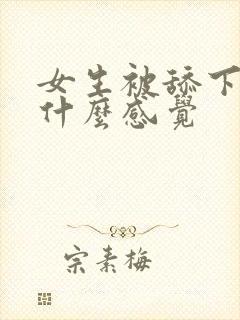 女生被舔下
什麼感覺
宗素梅